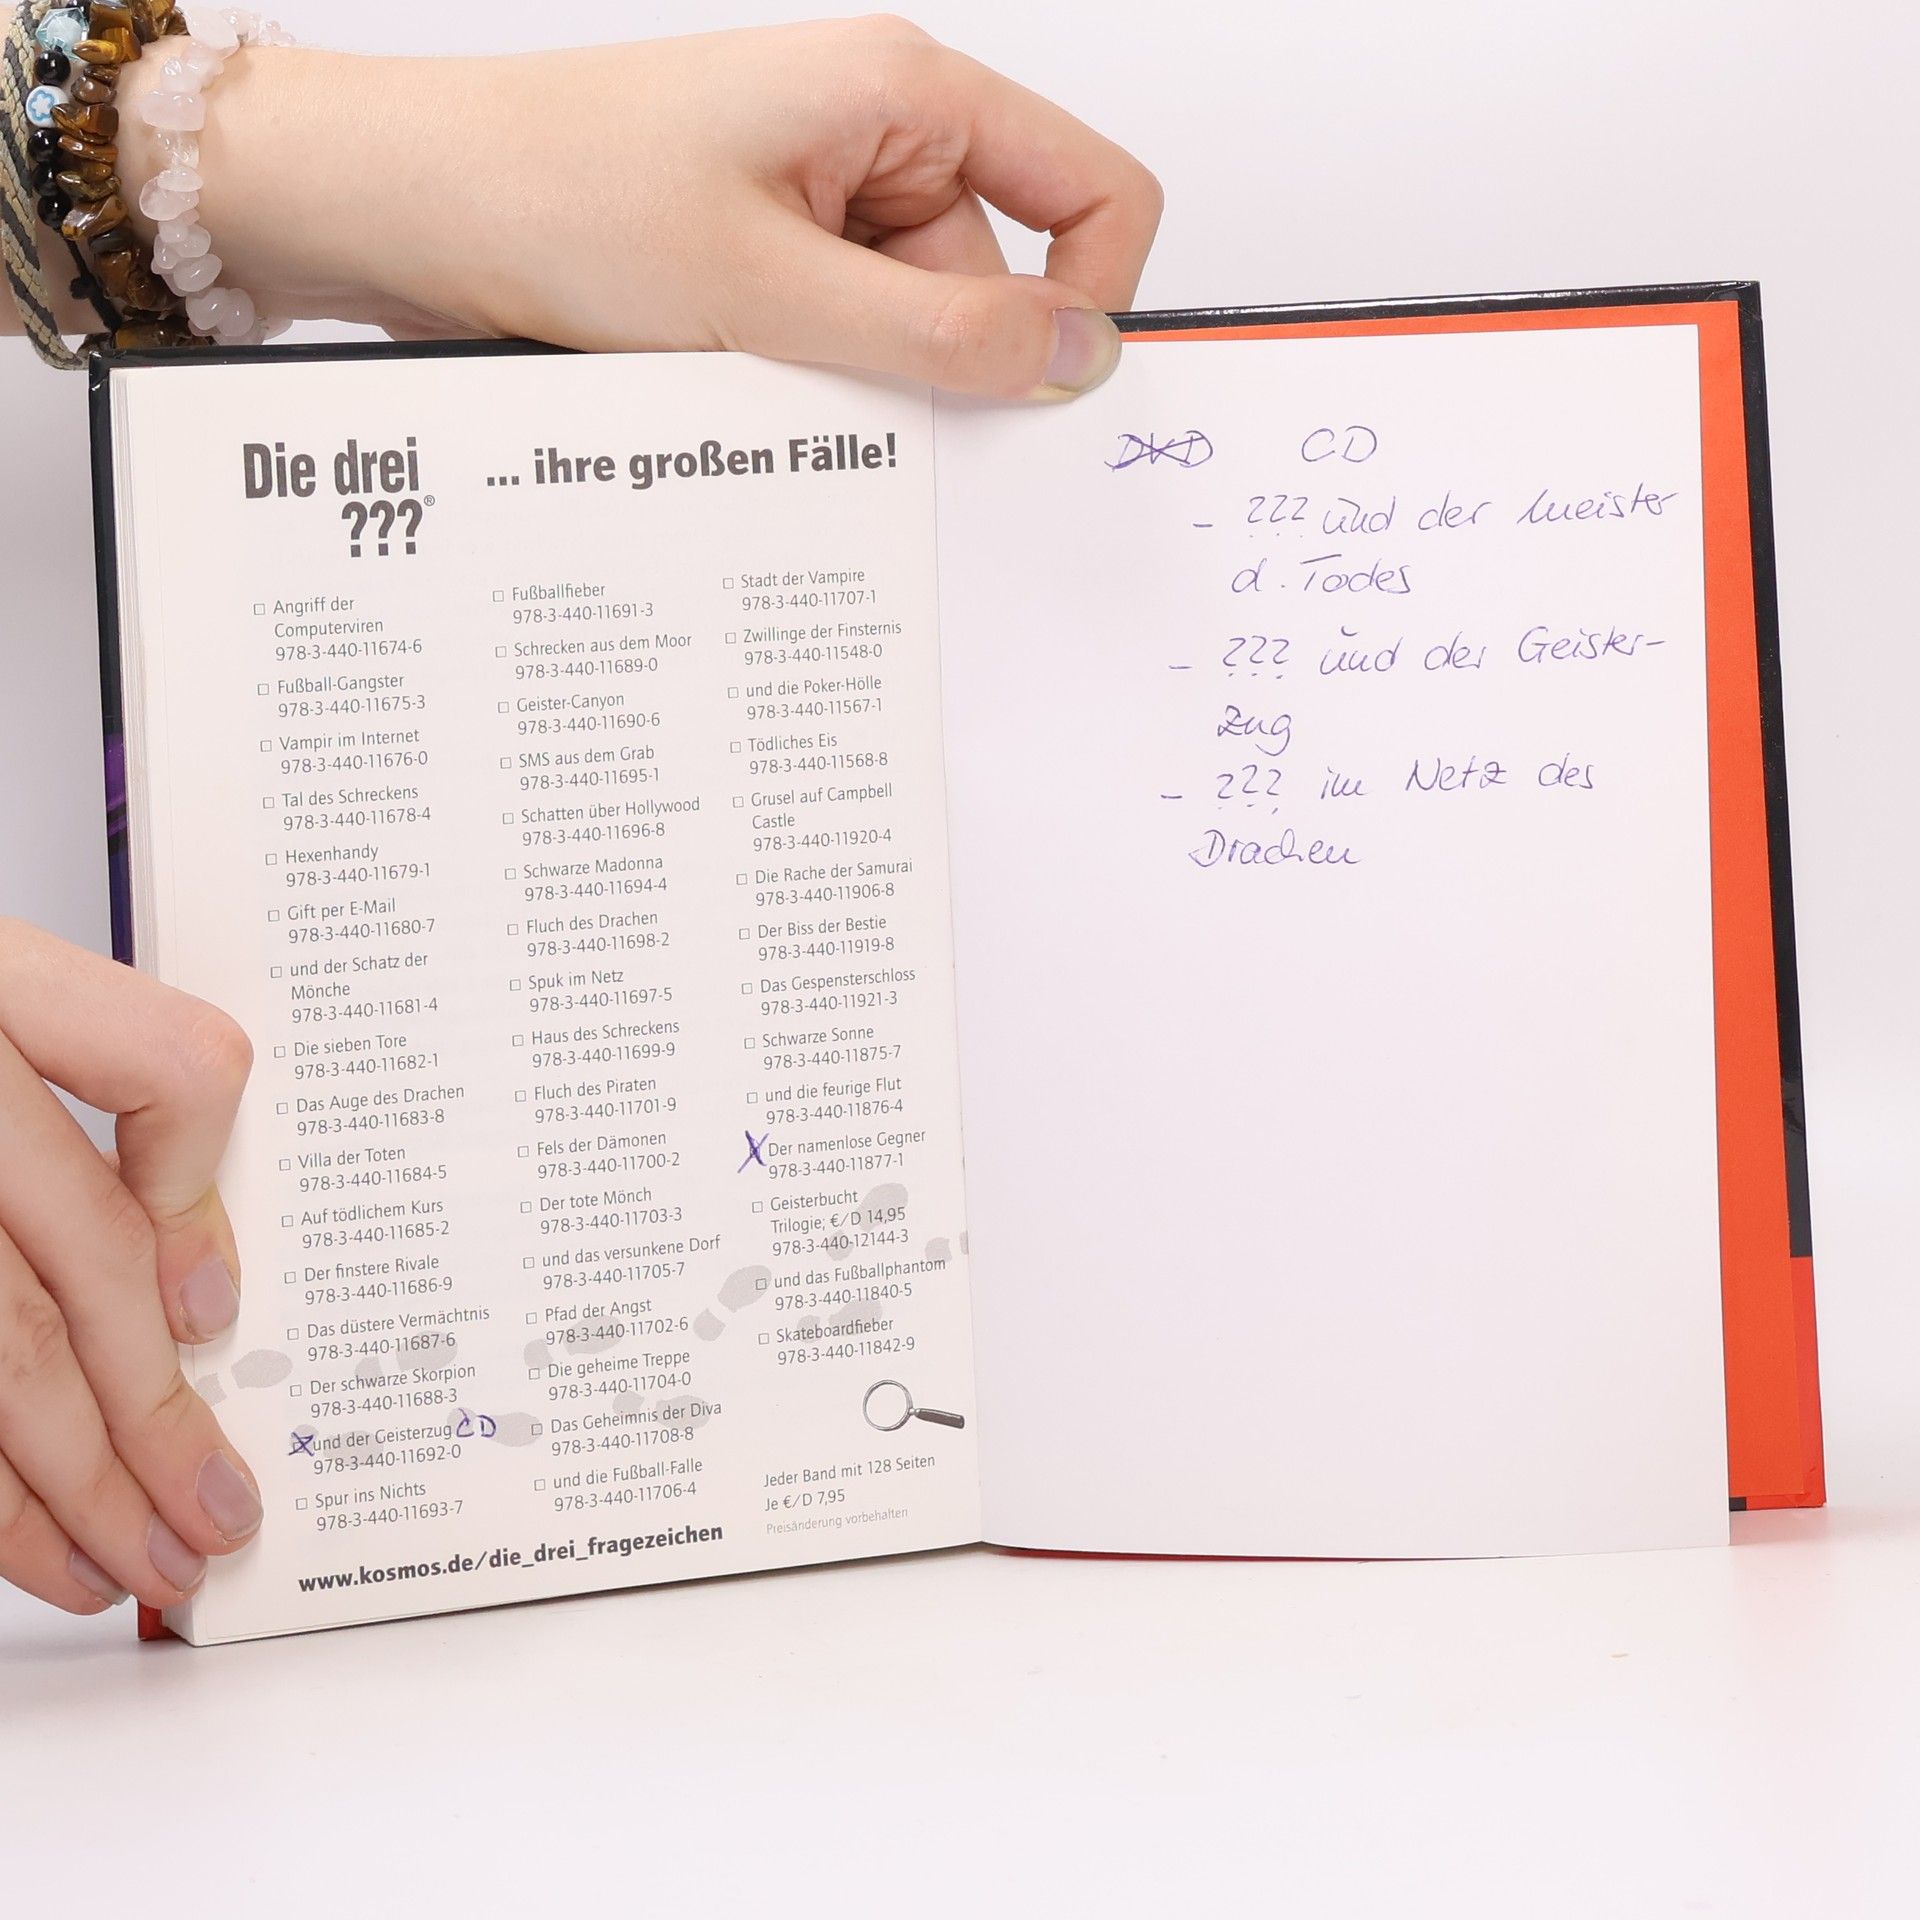 Die drei
???®
... ihre großen Fälle!
□ Angriff der
Computerviren
978-3-440-11674-6
□ Fußball-Gangster
978-3-440-11675-3
□ Vampir im Internet
978-3-440-11676-0
□ Tal des Schreckens
978-3-440-11678-4
□ Hexenhandy
978-3-440-11679-1
□ Gift per E-Mail
978-3-440-11680-7
□ und der Schatz der
Mönche
978-3-440-11681-4
□ Die sieben Tore
978-3-440-11682-1
□ Das Auge des Drachen
978-3-440-11683-8
□ Villa der Toten
978-3-440-11684-5
□ Auf tödlichem Kurs
978-3-440-11685-2
□ Der finstere Rivale
978-3-440-11686-9
□ Das düstere Vermächtnis
978-3-440-11687-6
□ Der schwarze Skorpion
978-3-440-11688-3
X und der Geisterzug CD
978-3-440-11692-0
□ Spur ins Nichts
978-3-440-11693-7
□ Fußballfieber
978-3-440-11691-3
□ Schrecken aus dem Moor
978-3-440-11689-0
□ Geister-Canyon
978-3-440-11690-6
□ SMS aus dem Grab
978-3-440-11695-1
□ Schatten über Hollywood
978-3-440-11696-8
□ Schwarze Madonna
978-3-440-11694-4
□ Fluch des Drachen
978-3-440-11698-2
□ Spuk im Netz
978-3-440-11697-5
□ Haus des Schreckens
978-3-440-11699-9
□ Fluch des Piraten
978-3-440-11701-9
□ Fels der Dämonen
978-3-440-11700-2
□ Der tote Mönch
978-3-440-11703-3
□ und das versunkene Dorf
978-3-440-11705-7
□ Pfad der Angst
978-3-440-11702-6
□ Die geheime Treppe
978-3-440-11704-0
□ Das Geheimnis der Diva
978-3-440-11708-8
□ und die Fußball-Falle
978-3-440-11706-4
□ Stadt der Vampire
978-3-440-11707-1
□ Zwillinge der Finsternis
978-3-440-11548-0
□ und die Poker-Hölle
978-3-440-11567-1
□ Tödliches Eis
978-3-440-11568-8
□ Grusel auf Campbell
Castle
978-3-440-11920-4
□ Die Rache der Samurai
978-3-440-11906-8
□ Der Biss der Bestie
978-3-440-11919-8
□ Das Gespensterschloss
978-3-440-11921-3
□ Schwarze Sonne
978-3-440-11875-7
□ und die feurige Flut
978-3-440-11876-4
X Der namenlose Gegner
978-3-440-11877-1
□ Geisterbucht
Trilogie; €/D 14,95
978-3-440-12144-3
□ und das Fußballphantom
978-3-440-11840-5
□ Skateboardfieber
978-3-440-11842-9
Jeder Band mit 128 Seiten
Je €/D 7,95
Preisänderung vorbehalten
www.kosmos.de/die_drei_fragezeichen
DVD CD
- ??? und der Meister
d. Todes
- ??? und der Geister-
zug
- ??? im Netz des
Drachen